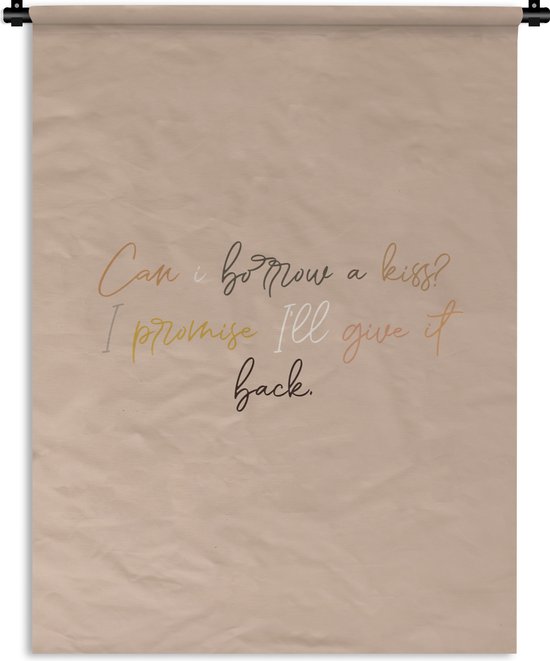 Can i borrow a kiss?
I promise I'll give it
back.